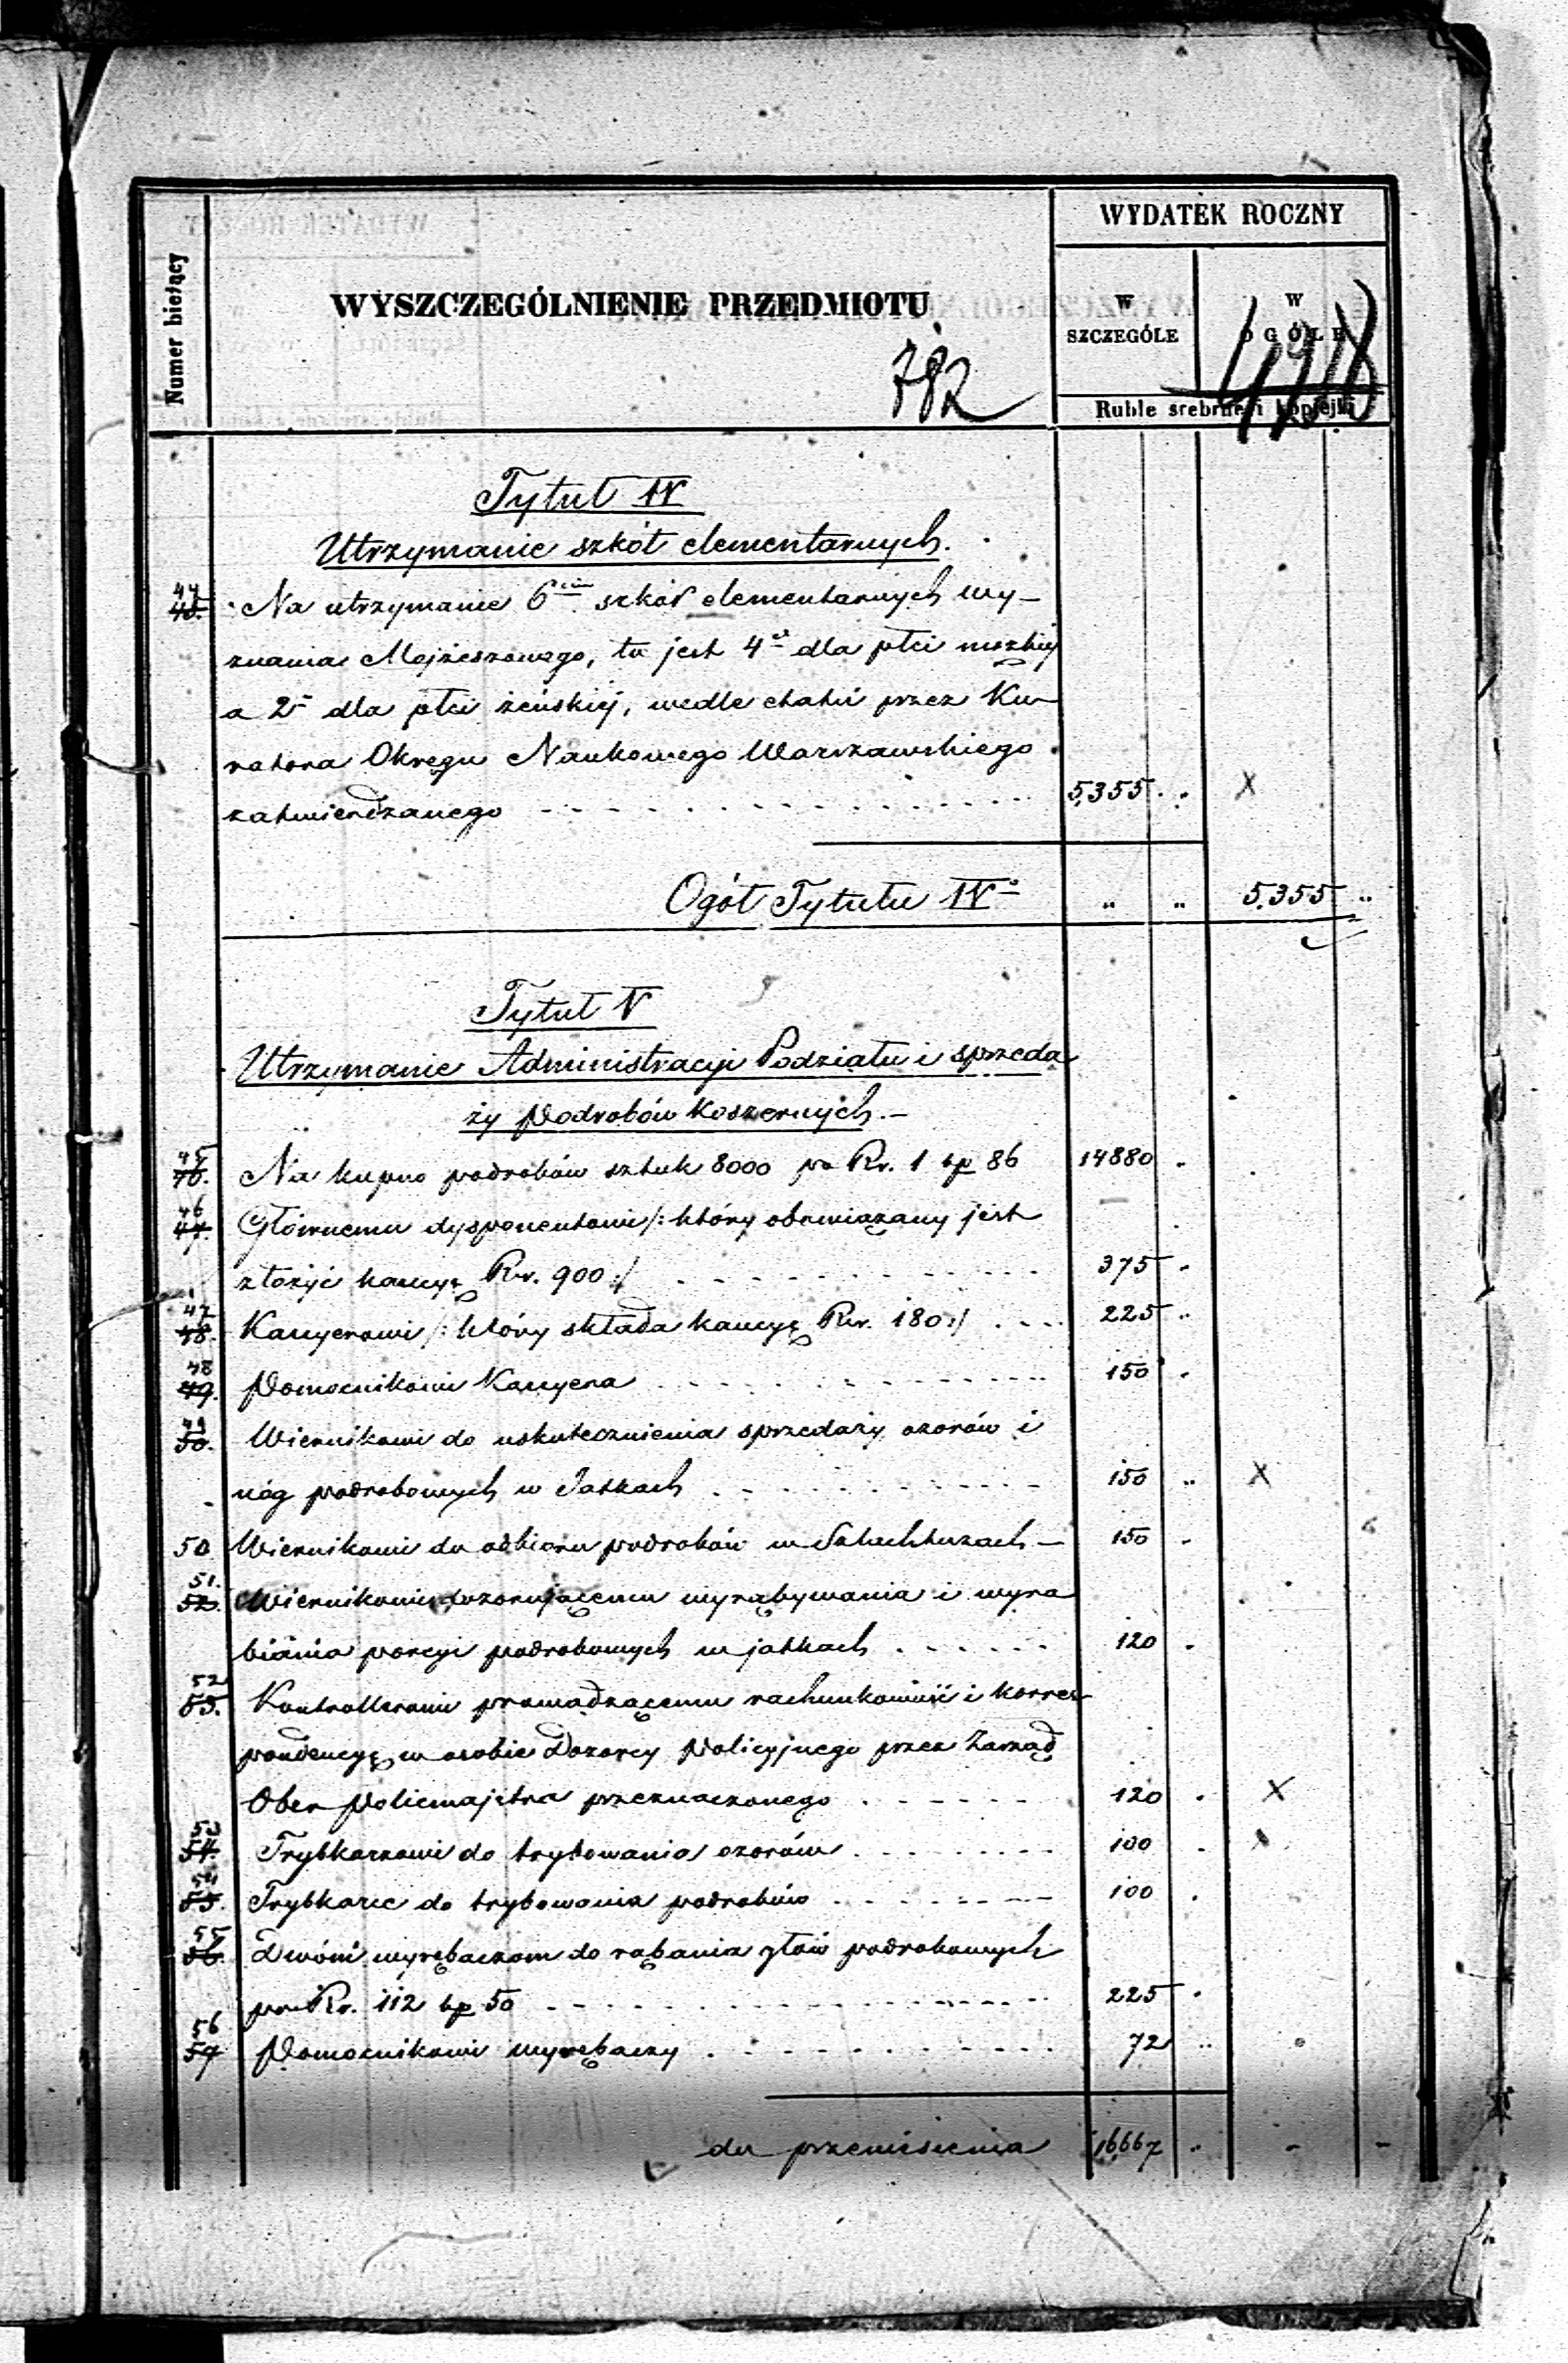 WYDATEK ROCZNY
Numer bieżący
WYSZCZEGÓLNIENIE PRZEDMIOTU
W SZCZEGÓLE
W OGÓLE
782
Ruble srebrne i kopiejki
Tytuł IV
Utrzymanie szkół elementarnych.
44 45. Na utrzymanie 6ciu szkół elementarnych wy-
znania Mojżeszowego, to jest 4ch dla płci męzkiej
a 2ch dla płci żeńskiej, wedle etatu przez Ku-
ratora Okręgu Naukowego Warszawskiego
zatwierdzanego 5355 .. X
Ogół Tytułu IVo .. .. 5.355 ..
Tytuł V
Utrzymanie Administracyi Podziału i sprzeda
ży Podrobów Koszernych.-
45 46. Na kupno podrobów sztuk 8000 po Rr. 1 kp 86 14880 .
46 47. Głównemu dysponentowi /: który obowiązany jest
złożyć kaucyę Rsr. 900 :/ 375 .
47 48. Kassyerowi /: który składa kaucyę Rsr. 180 :/ 225 ..
48 49. Pomocnikowi Kassyera 150 .
49 50. Wiernikowi do uskutecznienia sprzedaży ozorów i
nóg podrobowych w Jatkach 150 .. X
50 Wiernikowi do odbioru podrobów w Szlachtuzach - 150 .
51. 52. Wiernikowi dozorującemu wyrąbywania i wyra
biania porcyi podrobowych w jatkach 120 .
52 53. Kontrollerowi prowadzącemu rachunkowość i korres
pondencyę w osobie Dozorcy Policyjnego przez Zarząd
Ober Policmajstra przeznaczonego 120 . X
53 54. Trybkarzowi do trybowania ozorów 100 . x
54 55. Trybkarce do trybowania podrobów 100 .
55 56. Dwóm wyrębaczom do rąbania głów podrobowych
po Rr. 112 kp 50 225 .
56 57 Pomocnikowi wyrębaczy 72 ..
do przeniesienia 16667 .. - -